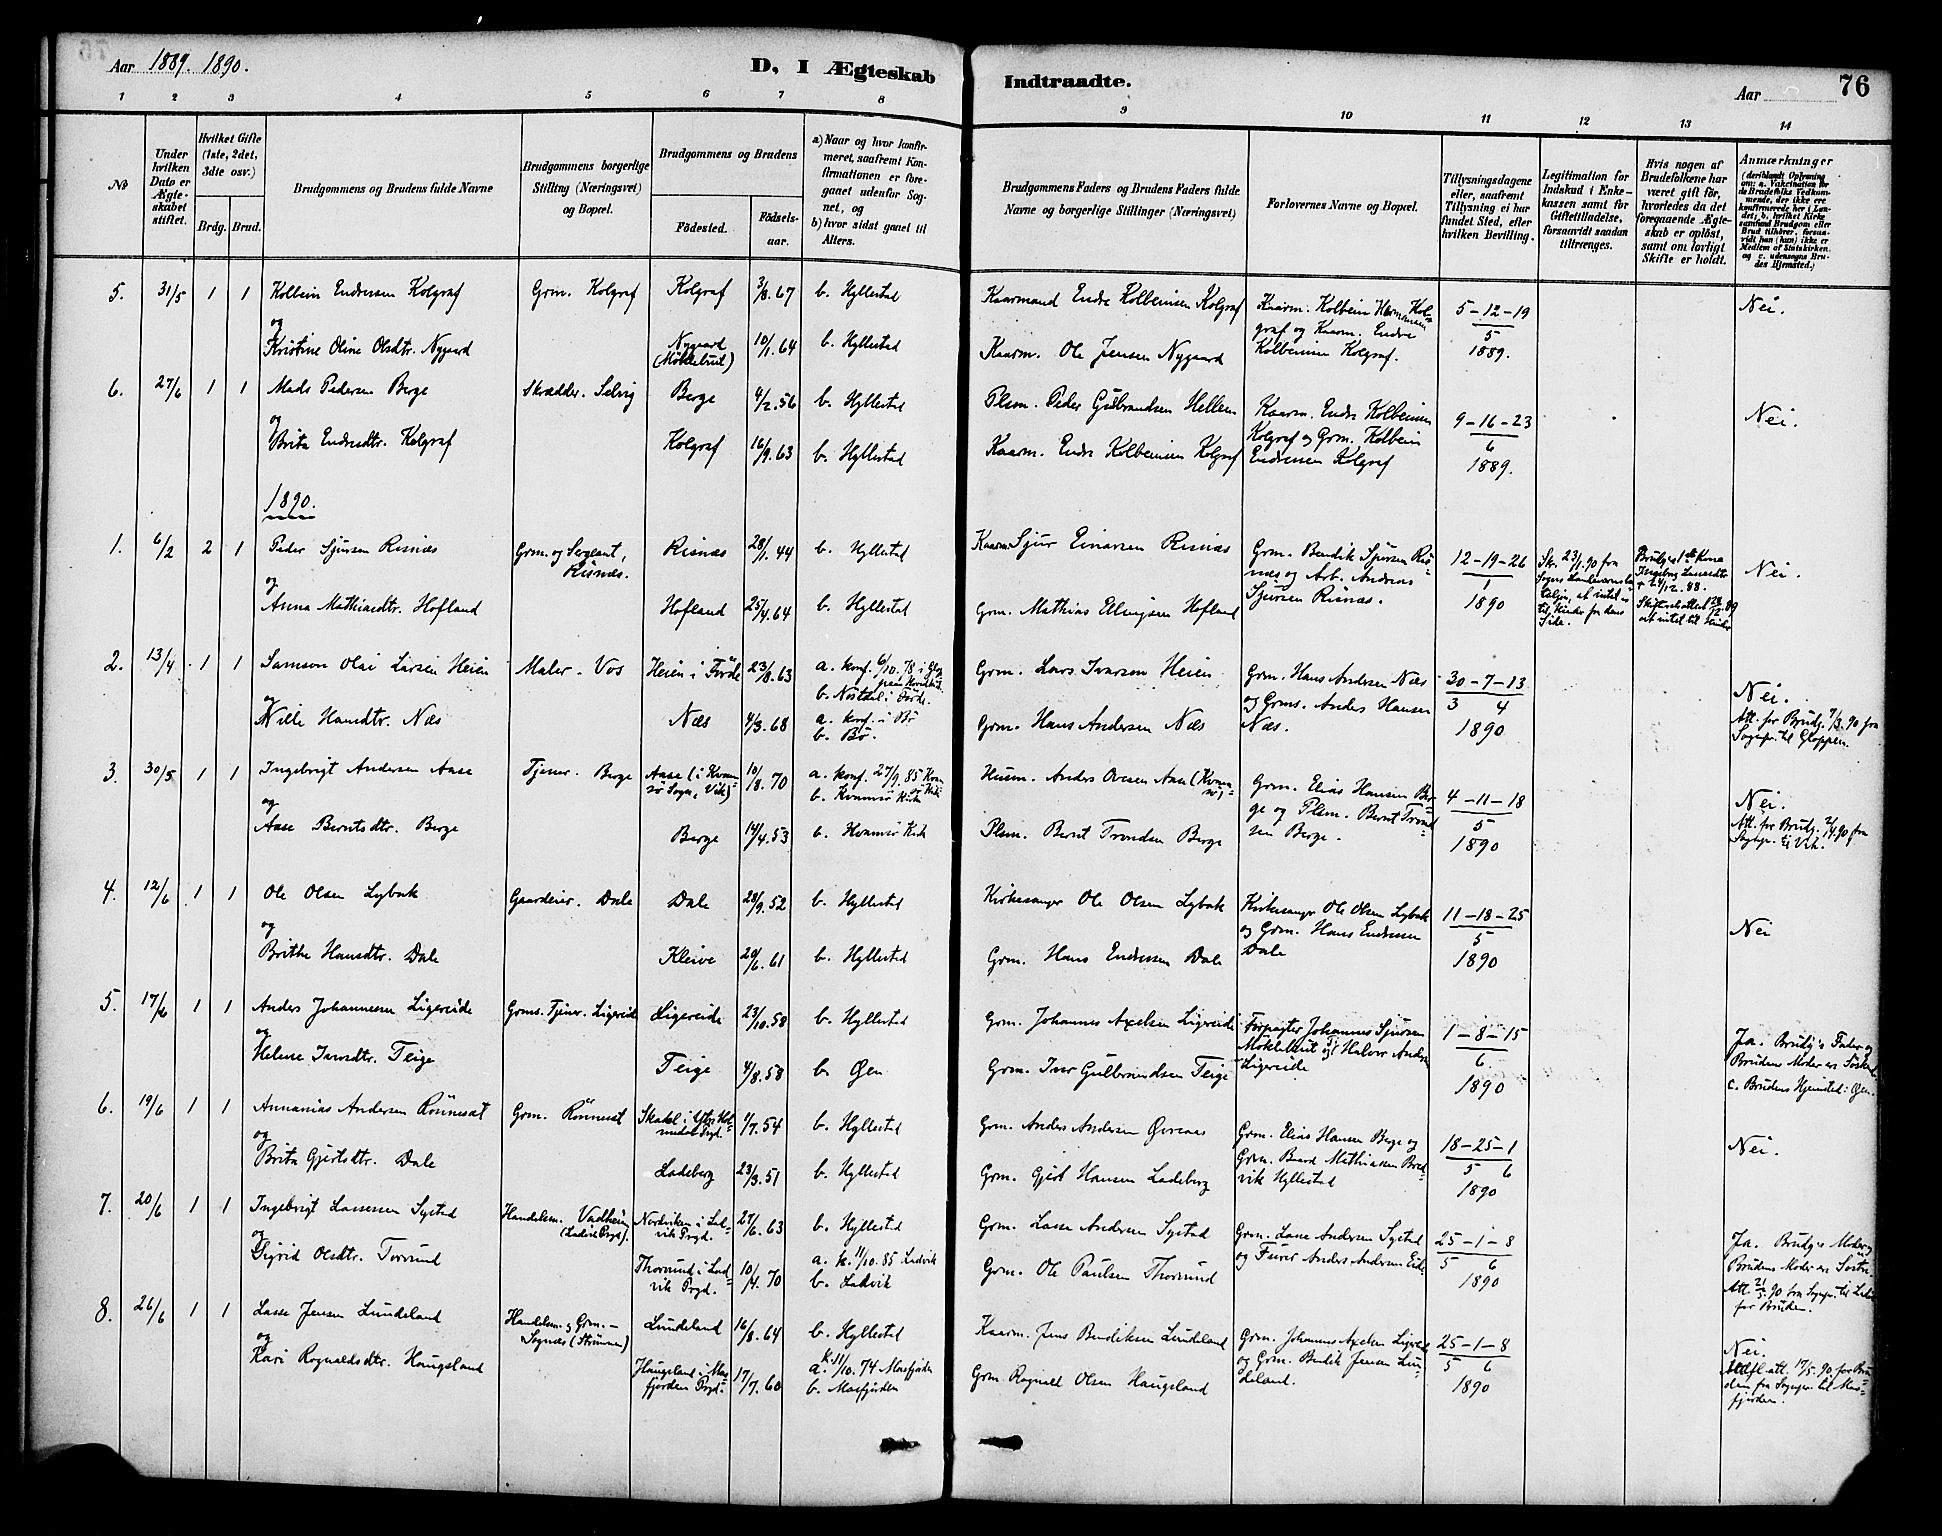 Aar 1889. 1890.
D, I Ægteskab Indtraadte.
Aar
76
1 2 3 4 5 6 7 8 9 10 11 12 13 14
No
Under hvilken Dato er Ægteskabet stiftet.
Hvilket Gifte (1ste, 2det, 3die osv.)
Brdg. Brud.
Brudgommens og Brudens fulde Navne
Brudgommens borgerlige Stilling (Næringsvei) og Bopæl.
Brudgommens og Brudens
Födested. Födselsaar.
a) Naar og hvor konfirmeret, saafremt Konfirmationen er foregaaet udenfor Sognet, og
b) hvor sidst gaaet til Alters.
Brudgommens Faders og Brudens Faders fulde Navne og borgerlige Stillinger (Næringsvei)
Forlovernes Navne og Bopæl.
Tillysningsdagene eller, saafremt Tillysning ei har fundet Sted, efter hvilken Bevilling.
Legitimation for Indskud i Enkekassen samt for Giftetilladelse, forsaavidt saadan tiltrænges.
Hvis nogen af Brudefolkene har været gift för, hvorledes da det foregaaende Ægteskab er oplöst, samt om lovligt Skifte er holdt.
Anmærkninger (deriblandt Oplysning om: a. Vakcination for de Brudefolks Vedkommende, der ikke ere konfirmerede her i Landet; b. hvilket Kirkesamfund Brudgom eller Brud tilhörer, forsaavidt han (hun) ikke er Medlem af Statskirken, og c. udensogns Brudes Hjemsted.)
5. 31/5 1 1 Kolbein Endresen Kolgraf Grm. Kolgraf Kolgraf 3/8. 67 b. Hyllestad Kaarmand Endre Kolbeinsen Kolgraf Kaarm. Kolbein Hermansen Kolgraf og Kaarm. Endre Kolbeinsen Kolgraf. 5-12-19/5 1889. Nei.
og
Kristine Oline Olsdtr. Nygaard Nygaard (Möklebust) 10/1. 64 b. Hyllestad Kaarm. Ole Jensen Nygaard
6. 27/6 1 1 Mads Pedersen Berge Skrædder. Selvig Berge 4/2. 56 b. Hyllestad Plsm. Peder Gulbrandsen Hellem Kaarm. Endre Kolbeinsen Kolgraf og Grm. Kolbein Endresen Kolgraf 9-16-23/6 1889. Nei.
og
Brita Endresdtr. Kolgraf Kolgraf 16/9. 63 b. Hyllestad Kaarm. Endre Kolbeinsen Kolgraf
1890.
1. 6/2 2 1 Peder Sjursen Risnæs Grm. og Sergeant, Risnæs. Risnæs 28/1. 44 b. Hyllestad Kaarm. Sjur Einarsen Risnæs Grm. Bendik Sjursen Risnæs og Arb. Andreas Sjursen Risnæs. 12-19-26/1 1890 Sk. 23/1. 90 fra Sogns til Kinder fra dens Side. Brudg.s 1ste Kone Ingeborg + 24/12. 88. Nei.
og
Anna Mathiasdtr. Hofland Hofland 25/4. 64 b. Hyllestad Grm. Mathias Ellingsen Hofland
2. 13/4 1 1 Samson Olai Larsen Heien Maler - Vos Heien i Förde 23/8. 63 a. konf. 6/10. 78 i b. i Förde. Grm. Lars Ivarson Heien Grm. Hans Andersen Næs og Grms. Anders Hansen Næs. 30-7-13/3 4 1890 Nei. Att. for Brudg. 7/3. 90 fra Sognepr. til Gloppen.
og
Nille Hansdtr. Næs Næs 4/3. 68 a. konf. i Bö b. Bö. Grm. Hans Andersen Næs
3. 30/5 1 1 Ingebrigt Andersen Aase Tjener. Berge Aase (i Kvamsö Sogn, Vik) 10/8. 70 a. konf. 27/9. 85 b. Kvamsö Kirke Husm. Anders Ovesen Aase (Kvamsö) Grm. Elias Hansen Berge og Plsm. Bernt Trondsen Berge. 4-11-18/5 1890 Nei. Att. for Brudg. 2/4 90 fra Sognepr. til Vik.
og
Aase Berntsdtr. Berge Berge 14/4. 53 b. Kvamsö Kirke Plsm. Bernt Trondsen Berge
4. 12/6 1 1 Ole Olsen Lybæk Gaardeier. Dale Dale 28/9. 52 b. Hyllestad Kirkesanger Ole Olsen Lybæk Kirkesanger Ole Olsen Lybæk og Grm. Hans Endresen Dale 11-18-25/5 1890 Nei
og
Brithe Hansdtr. Dale Kleive 20/6. 61 b. Hyllestad Grm. Hans Endresen Dale
5. 17/6 1 1 Anders Johannessen Ligereide Grms. Tjener. Ligereide Ligereide 23/10. 58 b. Hyllestad Grm. Johannes Axelsen Ligereide Forpagter Johannes Sjursen Möklebust og Halvor Anders. Ligereide 1-8-15/6 1890 Ja. Brudg.s Fader og Brudens Moder er Södskend c. Brudens Hjemsted: Öen.
og
Helene Iversdtr. Teige Teige 4/8. 58 b. Öen Grm. Iver Gulbrandsen Teige
6. 19/6 1 1 Annanias Andersen Rönneset Grm. Rönneset Skadel i Ytre Holmedal Prgd. 1/7. 54 b. Hyllestad Grm. Anders Andersen Grm. Elias Hansen Berge og Grm. Baard Mathiassen Bredvik Hyllestad 18-25-1/5 6 1890 Nei.
og
Brita Gjertsdtr. Dale Ladeberg 23/3. 51 b. Hyllestad Grm. Gjert Hansen Ladeberg
7. 20/6 1 1 Ingebrigt Lassesen Systad Handelsm. Vadheim (Ladvik Prgd.) Nordviken i Ladvik Prgd. 27/6. 63 b. Hyllestad Grm. Lasse Andersen Systad Grm. Lasse Andersen Systad og Furer Anders Andersen 25-1-8/5 6 1890 Ja. Brudg.s Moder og Brudens Moder er Söstre. Att. 21/5. 90 fra Sognepr. til Ladvik for Bruden.
og
Sigrid Olsdtr. Torsund Thorsund i Ladvik Prgd. 10/4. 70 a. k. 11/10. 85 Ladvik b. Ladvik Grm. Ole Paulsen Thorsund
8. 26/6 1 1 Lasse Jensen Lundeland Handelsm. og Grm. - Sognæs (Strömmen) Lundeland 16/8. 64 b. Hyllestad Kaarm. Jens Bendiksen Lundeland Grm. Johannes Axelsen Ligereide og Grm. Bendik Jensen Lundeland. 25-1-8/5 6 1890 Nei. att. 17/5. 90 for Bruden fra Sognepr. til Masfjorden.
og
Kari Rognaldsdtr. Haugsland Haugsland i Masfjorden Prgd. 17/7. 60 a. k. 11/10. 74 Masfjorden b. Masfjorden Grm. Rognald Olsen Haugsland